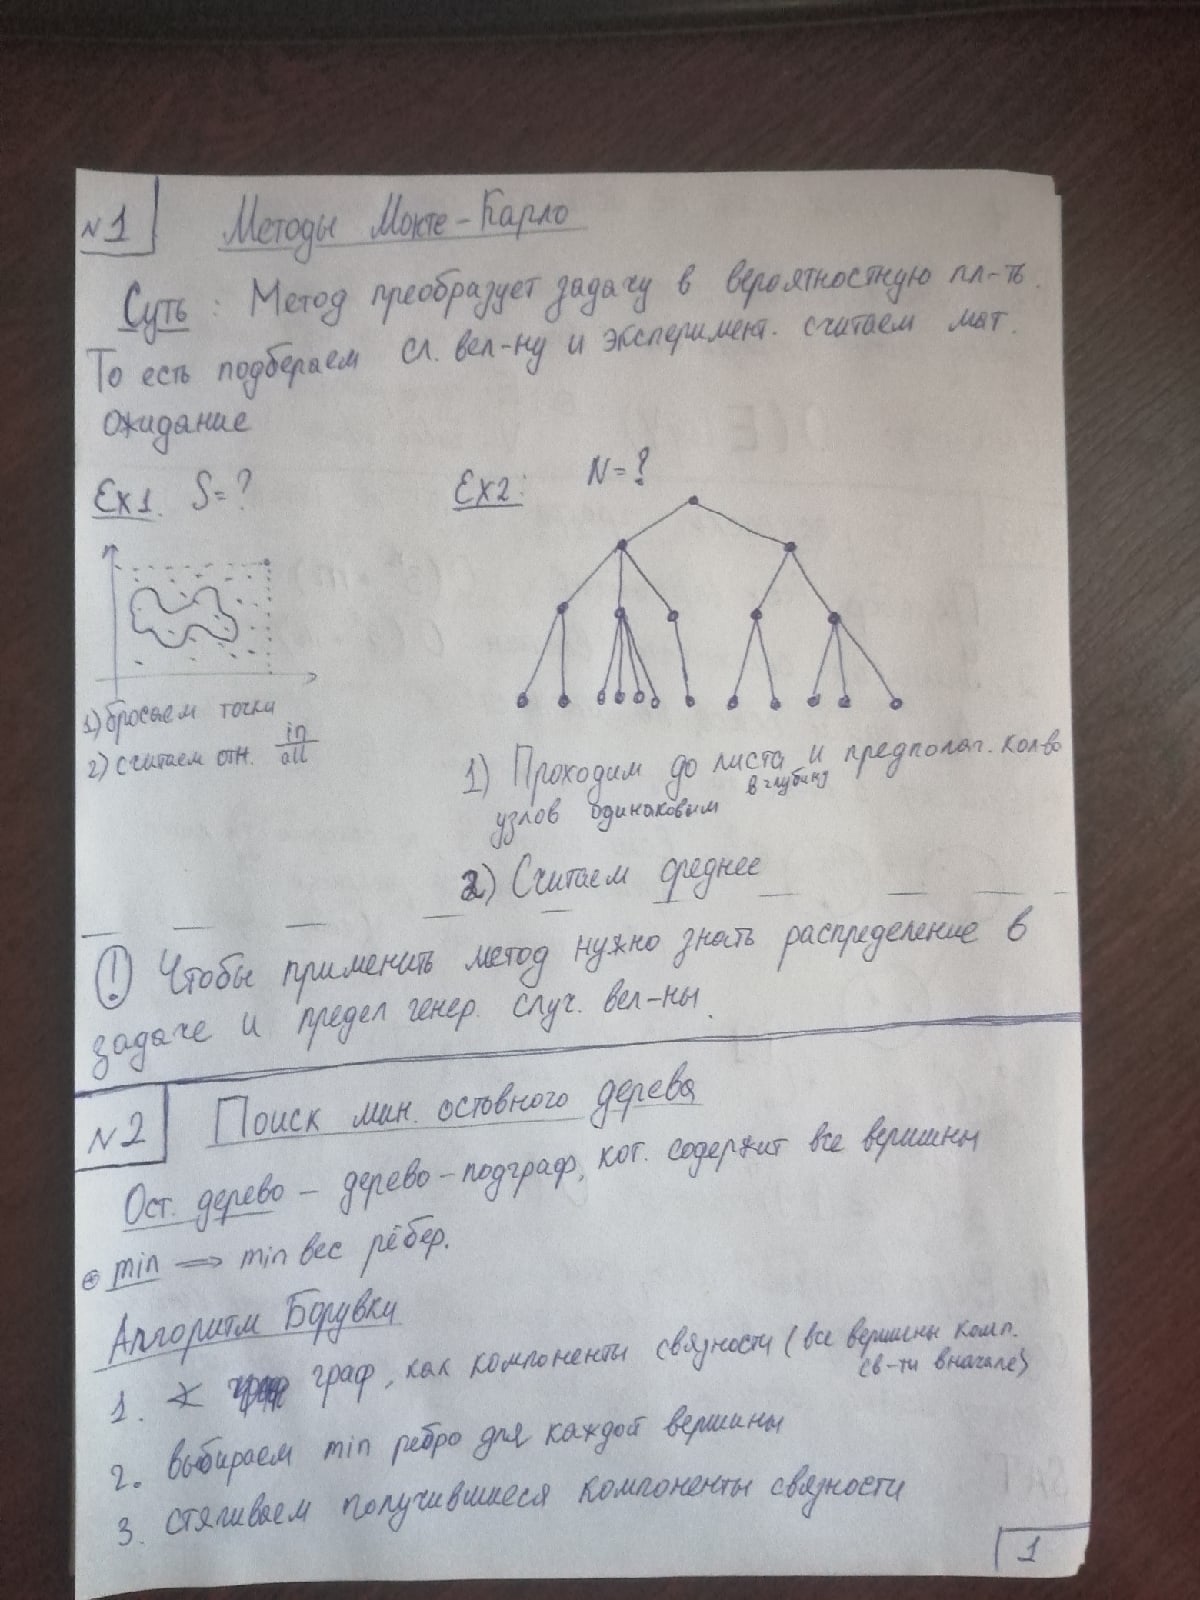 №1
Методы Монте-Карло
Суть: Метод преобразует задачу в вероятностную пл-ть.
То есть подбераем сл. вел-ну и эксперимент. считаем мат.
ожидание
Ex1. S=?
Ex2: N=?
1) бросаем точки
2) считаем отн. in/all
1) Проходим до листа и предполаг. кол-во
в глубину
узлов одинаковым
2) Считаем среднее
! Чтобы применить метод нужно знать распределение в
задаче и предел генер. случ. вел-ны.
№2
Поиск мин. остовного дерева
Ост. дерево – дерево-подграф, кот. содержит все вершины
min ⟹ min вес рёбер.
Алгоритм Борувки
1. граф, как компоненты связности (все вершины комп.
св-ти вначале)
2. выбираем min ребро для каждой вершины
3. стягиваем получившиеся компоненты связности
1